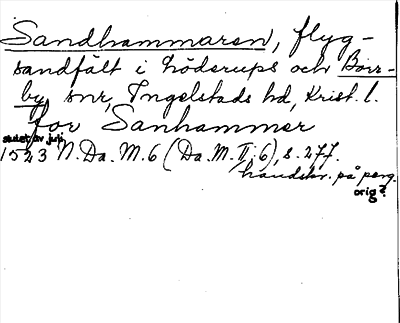 Sandhammaren, flyg-
sandfält i Löderups och Borr-
by snr, Ingelstads hd, Krist. l.
for Sanhammer
slutet av juli
1523 N. Da. M. 6 (Da. M. II: 6), s. 277.
handskr. på perg.
orig?